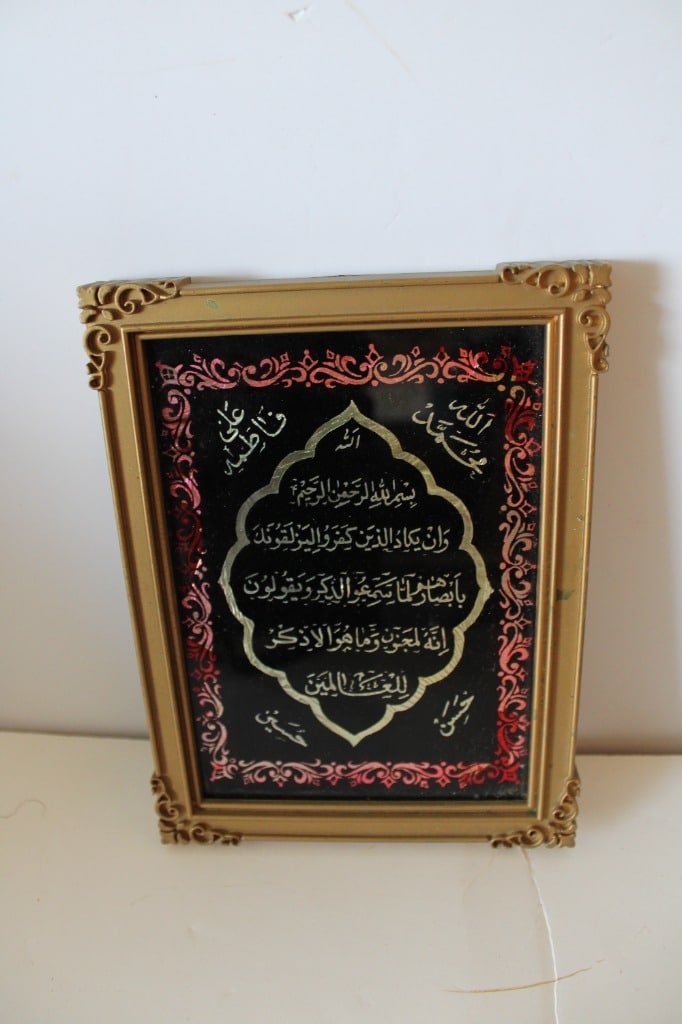 الله
محمد
علی
فاطمه
الله
بسم الله الرحمن الرحیم
وان یکاد الذین کفروا لیزلقونک
بابصارهم لما سمعوا الذکر ویقولون
انه لمجنون وما هو الا ذکر
للعالمین
حسن
حسین